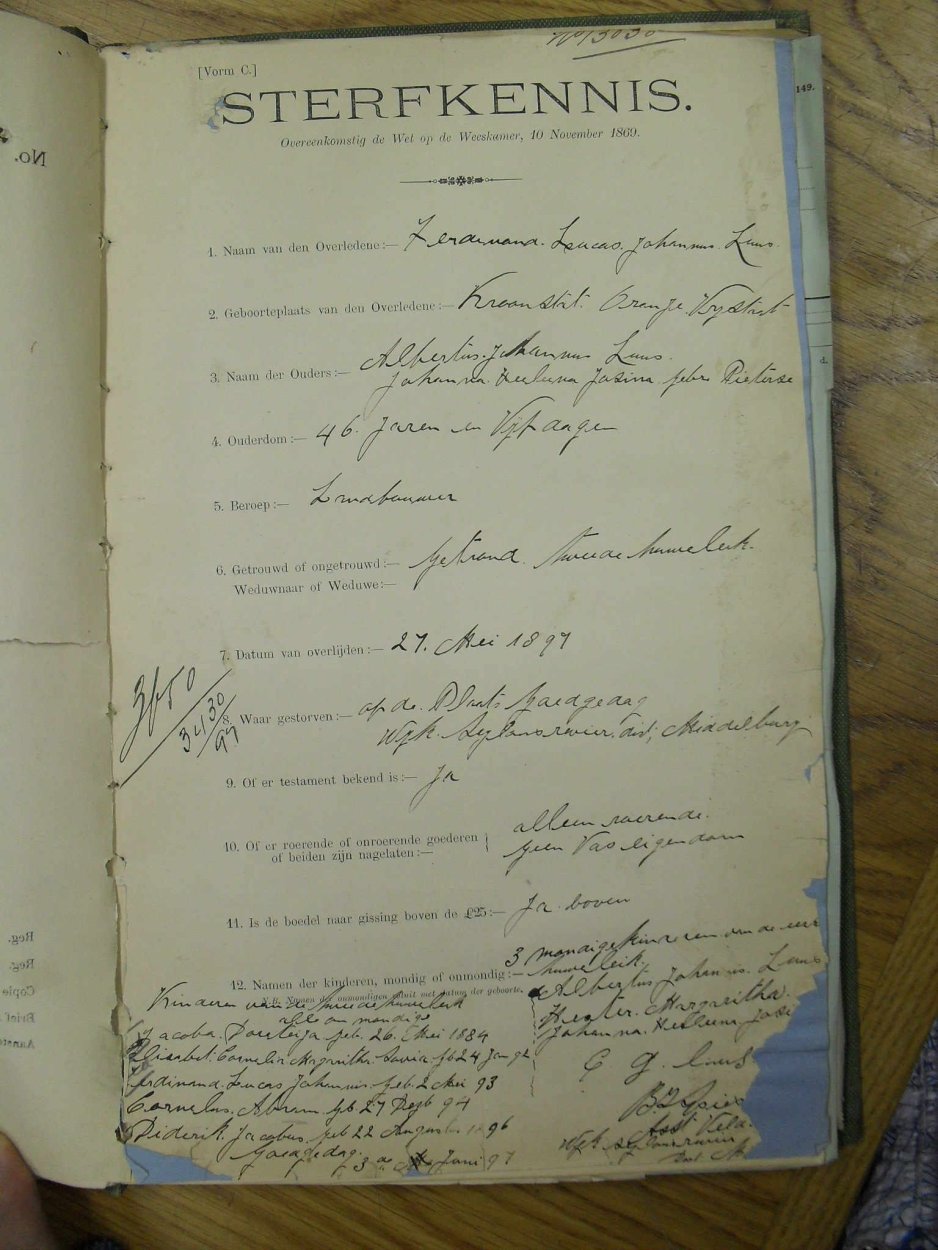 No 13030
[Vorm C.]
STERFKENNIS.
Overeenkomstig de Wet op de Weeskamer, 10 November 1869.
1. Naam van den Overledene:— Ferdinand. Lucas. Johannus. Luus.
2. Geboorteplaats van den Overledene:— Kroonstat. Oranje. Vrystaat
3. Naam der Ouders:— Albertus. Johannus Luus.
Johanna. Heelena Josina. gebr Pieterse
4. Ouderdom:— 46. Jaren en Vyf dagen
5. Beroep:— Landbouwer
6. Getrouwd of ongetrouwd:— getroud. tweede huwelerk.
Weduwnaar of Weduwe:—
7. Datum van overlijden:— 27. Mei 1897
3650
3430/97
8. Waar gestorven:— op de. Plaats Goedgedag
Wyk. Seylonsrevier. dist; Middelburg
9. Of er testament bekend is:— Ja
10. Of er roerende of onroerende goederen of beiden zijn nagelaten:— alleen roerende.
geen Vas eigendom
11. Is de boedel naar gissing boven de £25:— Ja. boven
12. Namen der kinderen, mondig of onmondig:— 3 mondige kinderen van de eer
huweleik.
N.B. Namen der onmondigen opgeven met datum der geboorte.
Albertus Johannis. Luus
Hester. Margaritha.
Johanna. Heeleena. Josi
Kinderen van de tweede huwelerk
alle on mondig
Jacoba. geb. 26. Mei 1884
Elisabet. Cornelia Margaritha. gb 24 Jan 92
Ferdinand. Lucas Johannis. geb. 2 Mei 93
Cornelus. Abram. gb 27 94
Diderik. Jacobus. geb 22 Augusts 1896
Goedgedag.
3 de Juni 97
C G. Luus
Asst Veld.
Wyk
149.
No.
Reg.
Reg.
Copie
Brief